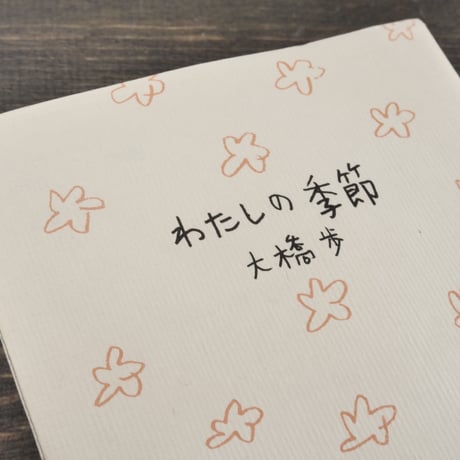 わたしの季節
大橋歩